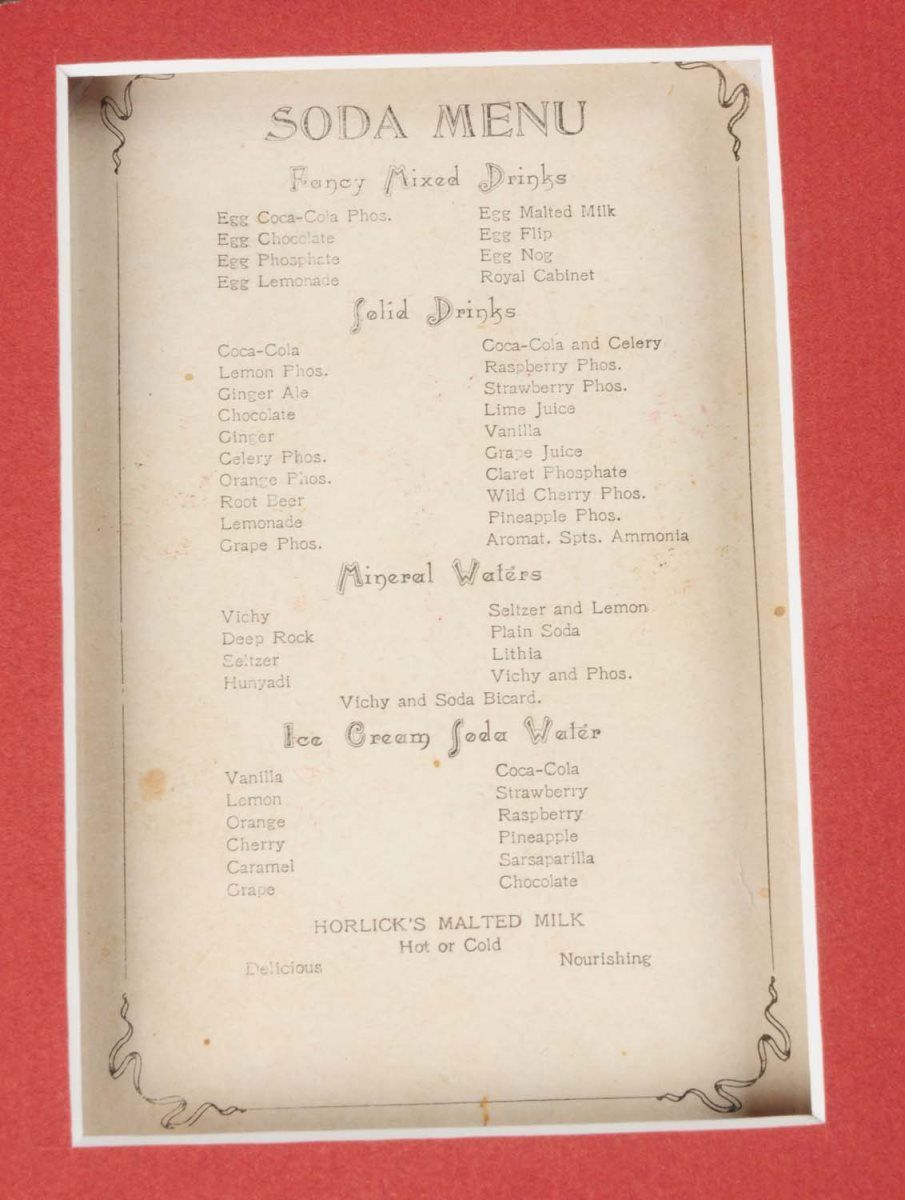 SODA MENU
Fancy Mixed Drinks
Egg Coca-Cola Phos.
Egg Chocolate
Egg Phosphate
Egg Lemonade
Egg Malted Milk
Egg Flip
Egg Nog
Royal Cabinet
Solid Drinks
Coca-Cola
Lemon Phos.
Ginger Ale
Chocolate
Ginger
Celery Phos.
Orange Phos.
Root Beer
Lemonade
Grape Phos.
Coca-Cola and Celery
Raspberry Phos.
Strawberry Phos.
Lime Juice
Vanilla
Grape Juice
Claret Phosphate
Wild Cherry Phos.
Pineapple Phos.
Aromat. Spts. Ammonia
Mineral Waters
Vichy
Deep Rock
Seltzer
Hunyadi
Seltzer and Lemon
Plain Soda
Lithia
Vichy and Phos.
Vichy and Soda Bicard.
Ice Cream Soda Water
Vanilla
Lemon
Orange
Cherry
Caramel
Grape
Coca-Cola
Strawberry
Raspberry
Pineapple
Sarsaparilla
Chocolate
HORLICK'S MALTED MILK
Hot or Cold
Delicious
Nourishing